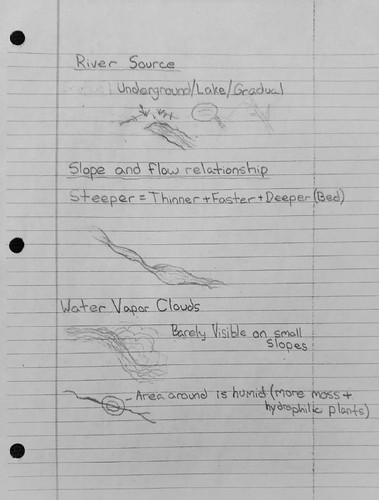 River Source
Underground/Lake/Gradual
Slope and flow relationship
Steeper = Thinner + Faster + Deeper (Bed)
Water Vapor Clouds
Barely Visible on small
slopes
Area around is humid (more moss +
hydrophilic plants)